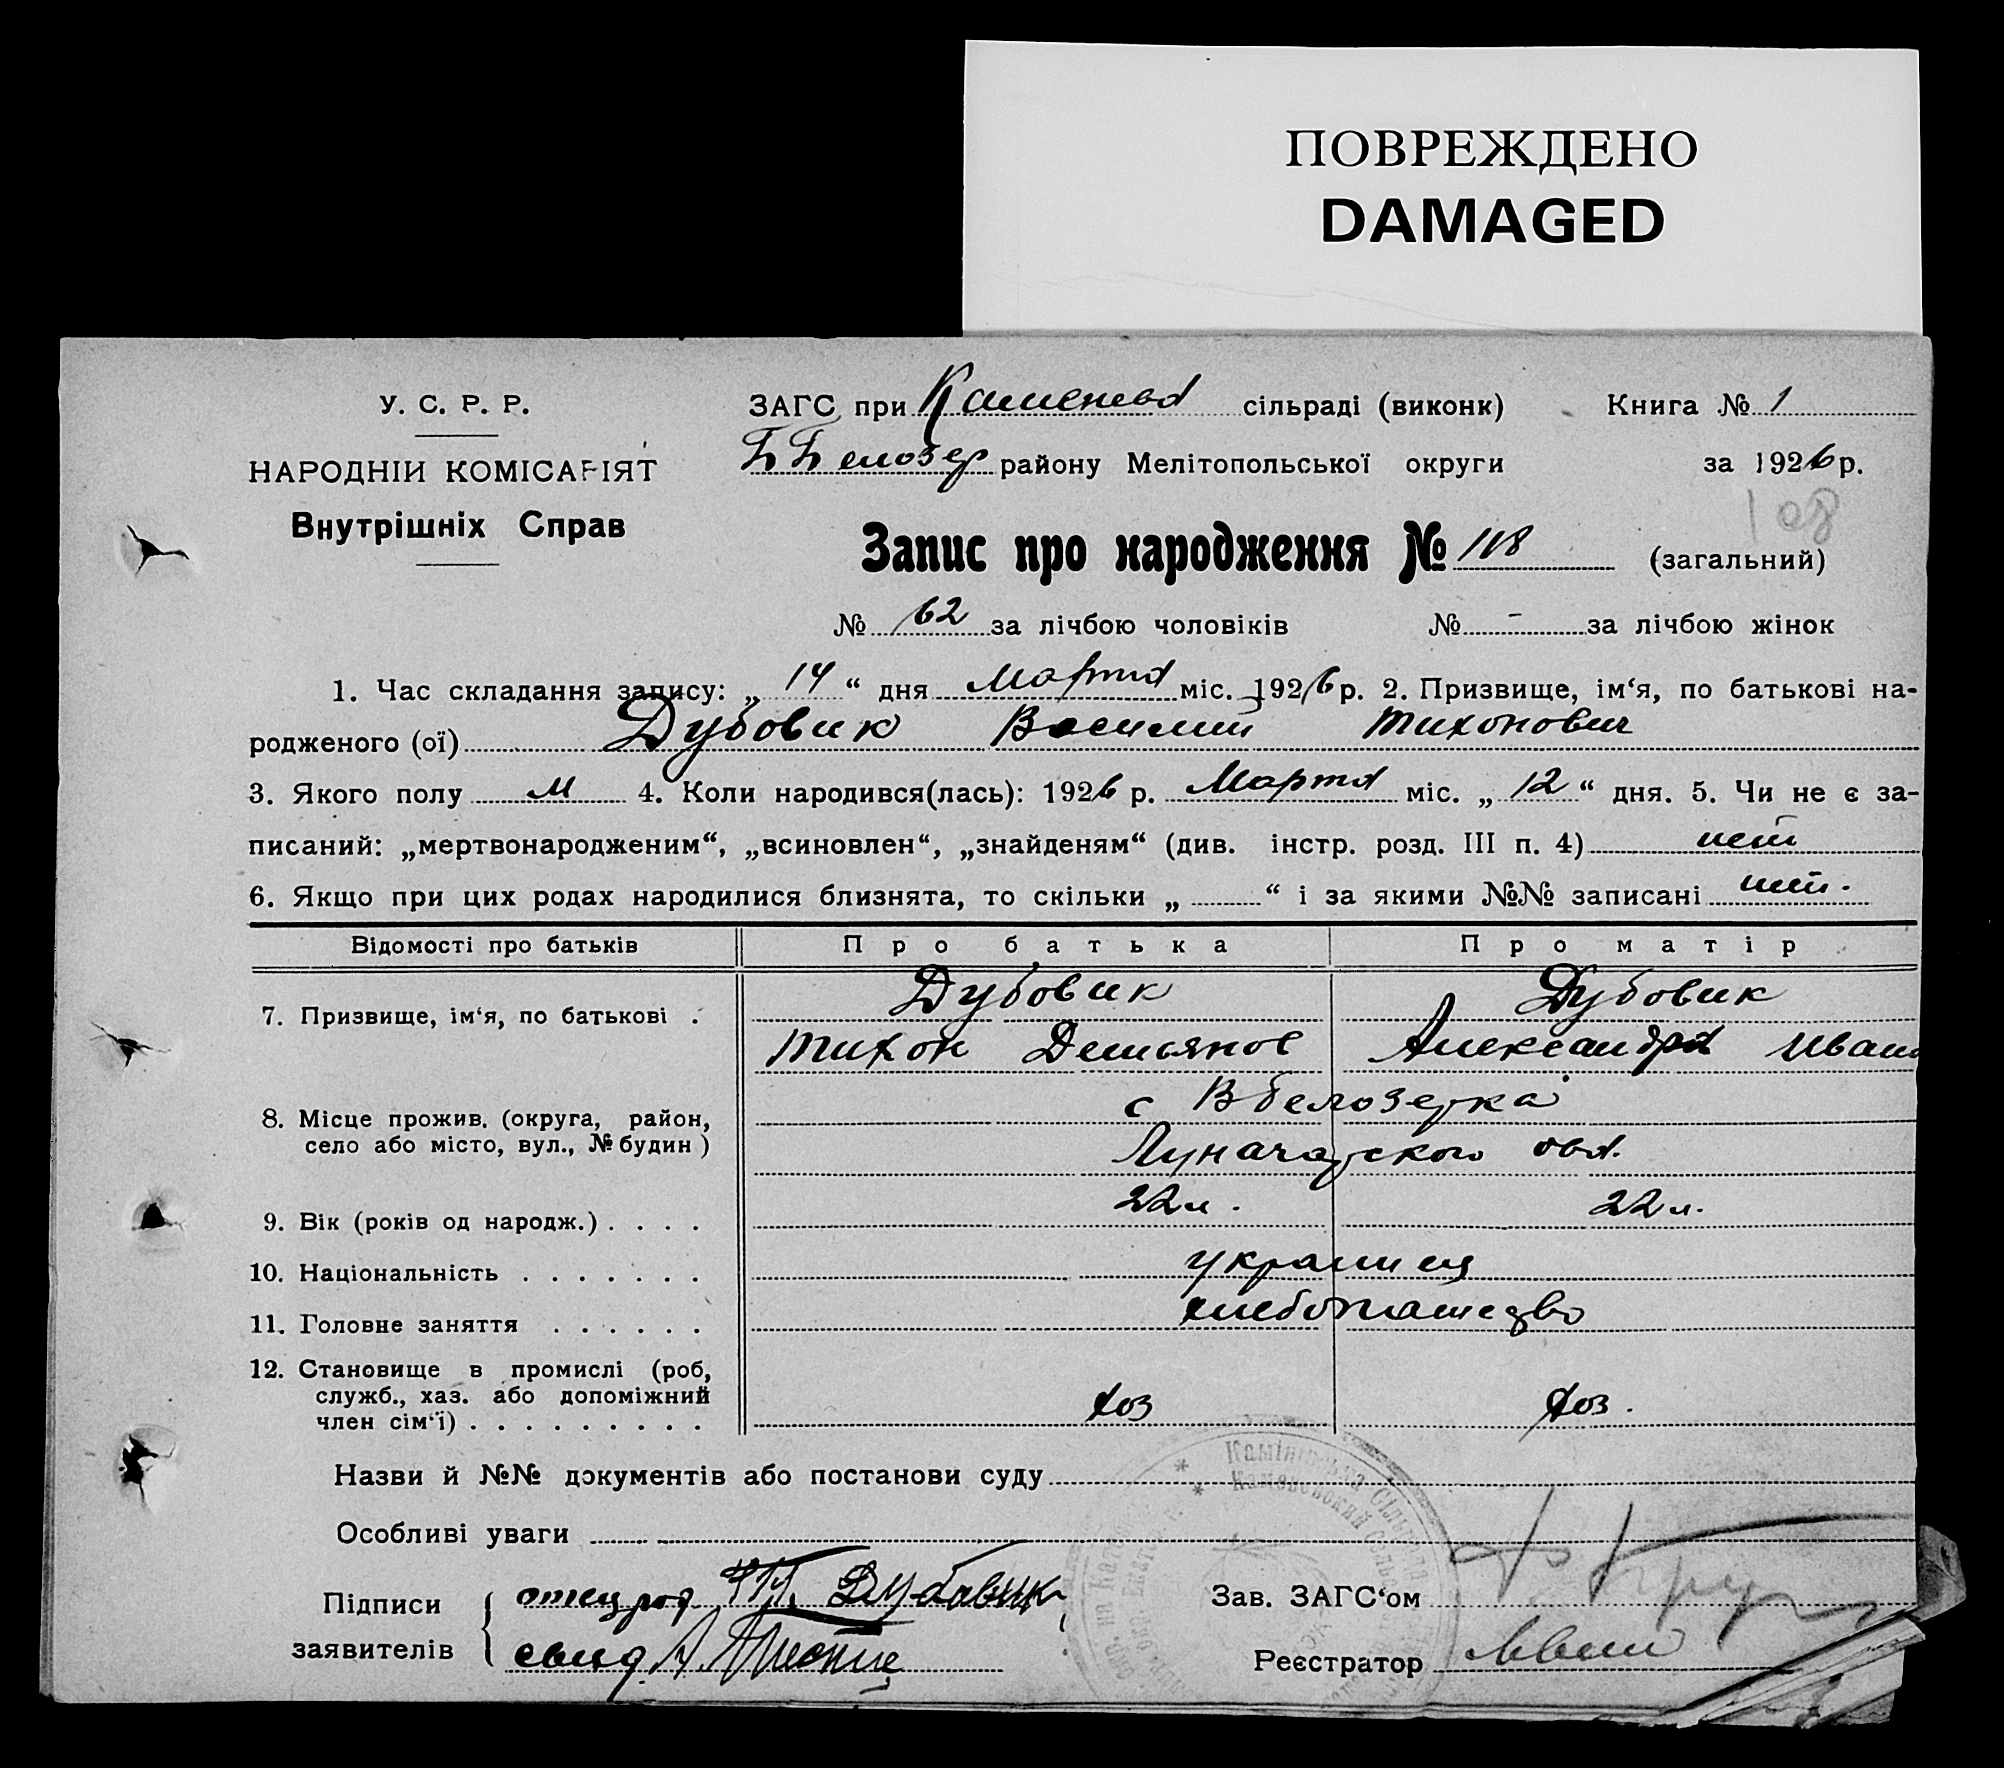 ПОВРЕЖДЕНО
DAMAGED
У. С. Р. Р.
НАРОДНІЙ КОМІСАРІЯТ
Внутрішніх Справ
ЗАГС при Каменской сільраді (виконк) Книга № 1
Б Белозер району Мелітопольської округи за 1926 р.
108
Запис про народження № 118 (загальний)
№ 62 за лічбою чоловіків № - за лічбою жінок
1. Час складання запису: „ 14 “ дня Марта міс. 1926 р. 2. Призвище, ім‘я, по батькові на-
родженого (ої) Дубовик Василий Тихонович
3. Якого полу м 4. Коли народився(лась): 1926 р. Марта міс. „ 12 “ дня. 5. Чи не є за-
писаний: „мертвонародженим“, „всиновлен“, „знайденям“ (див. інстр. розд. III п. 4) нет
6. Якщо при цих родах народилися близнята, то скільки „ “ і за якими №№ записані нет.
Відомості про батьків Про батька Про матір
7. Призвище, ім‘я, по батькові . Дубовик Дубовик
Тихон Демьянов Александра Иван
8. Місце прожив. (округа, район, с Вбелозерка
село або місто, вул., № будин) Луначарского
9. Вік (років од народж.) . . . . 22 л. 22 л.
10. Національність . . . . . . . украинцы
11. Головне заняття . . . . . . хлебопашество
12. Становище в промислі (роб,
служб., хаз. або допоміжний
член сім‘ї) . . . . . . . . . хоз хоз.
Назви й №№ документів або постанови суду
Особливі уваги
Підписи отец Дубовик Зав. ЗАГС‘ом
заявителів свид. Реєстратор